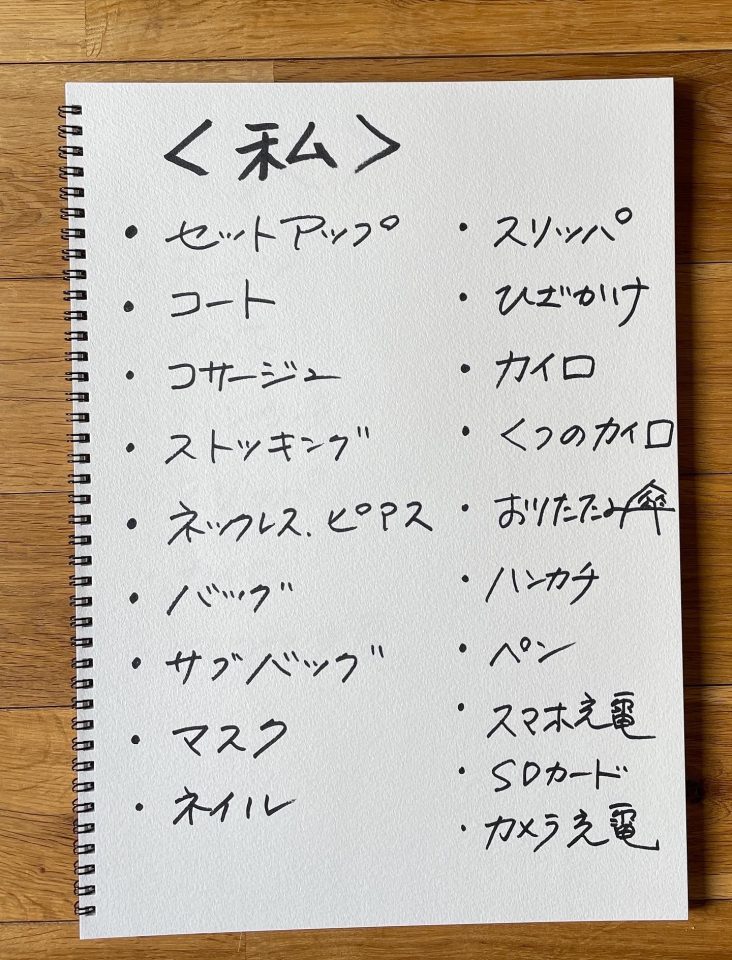 <私>
・セットアップ
・コート
・コサージュ
・ストッキング
・ネックレス、ピアス
・バッグ
・サブバッグ
・マスク
・ネイル
・スリッパ
・ひざかけ
・カイロ
・くつのカイロ
・おりたたみ傘
・ハンカチ
・ペン
・スマホ充電
・SDカード
・カメラ充電